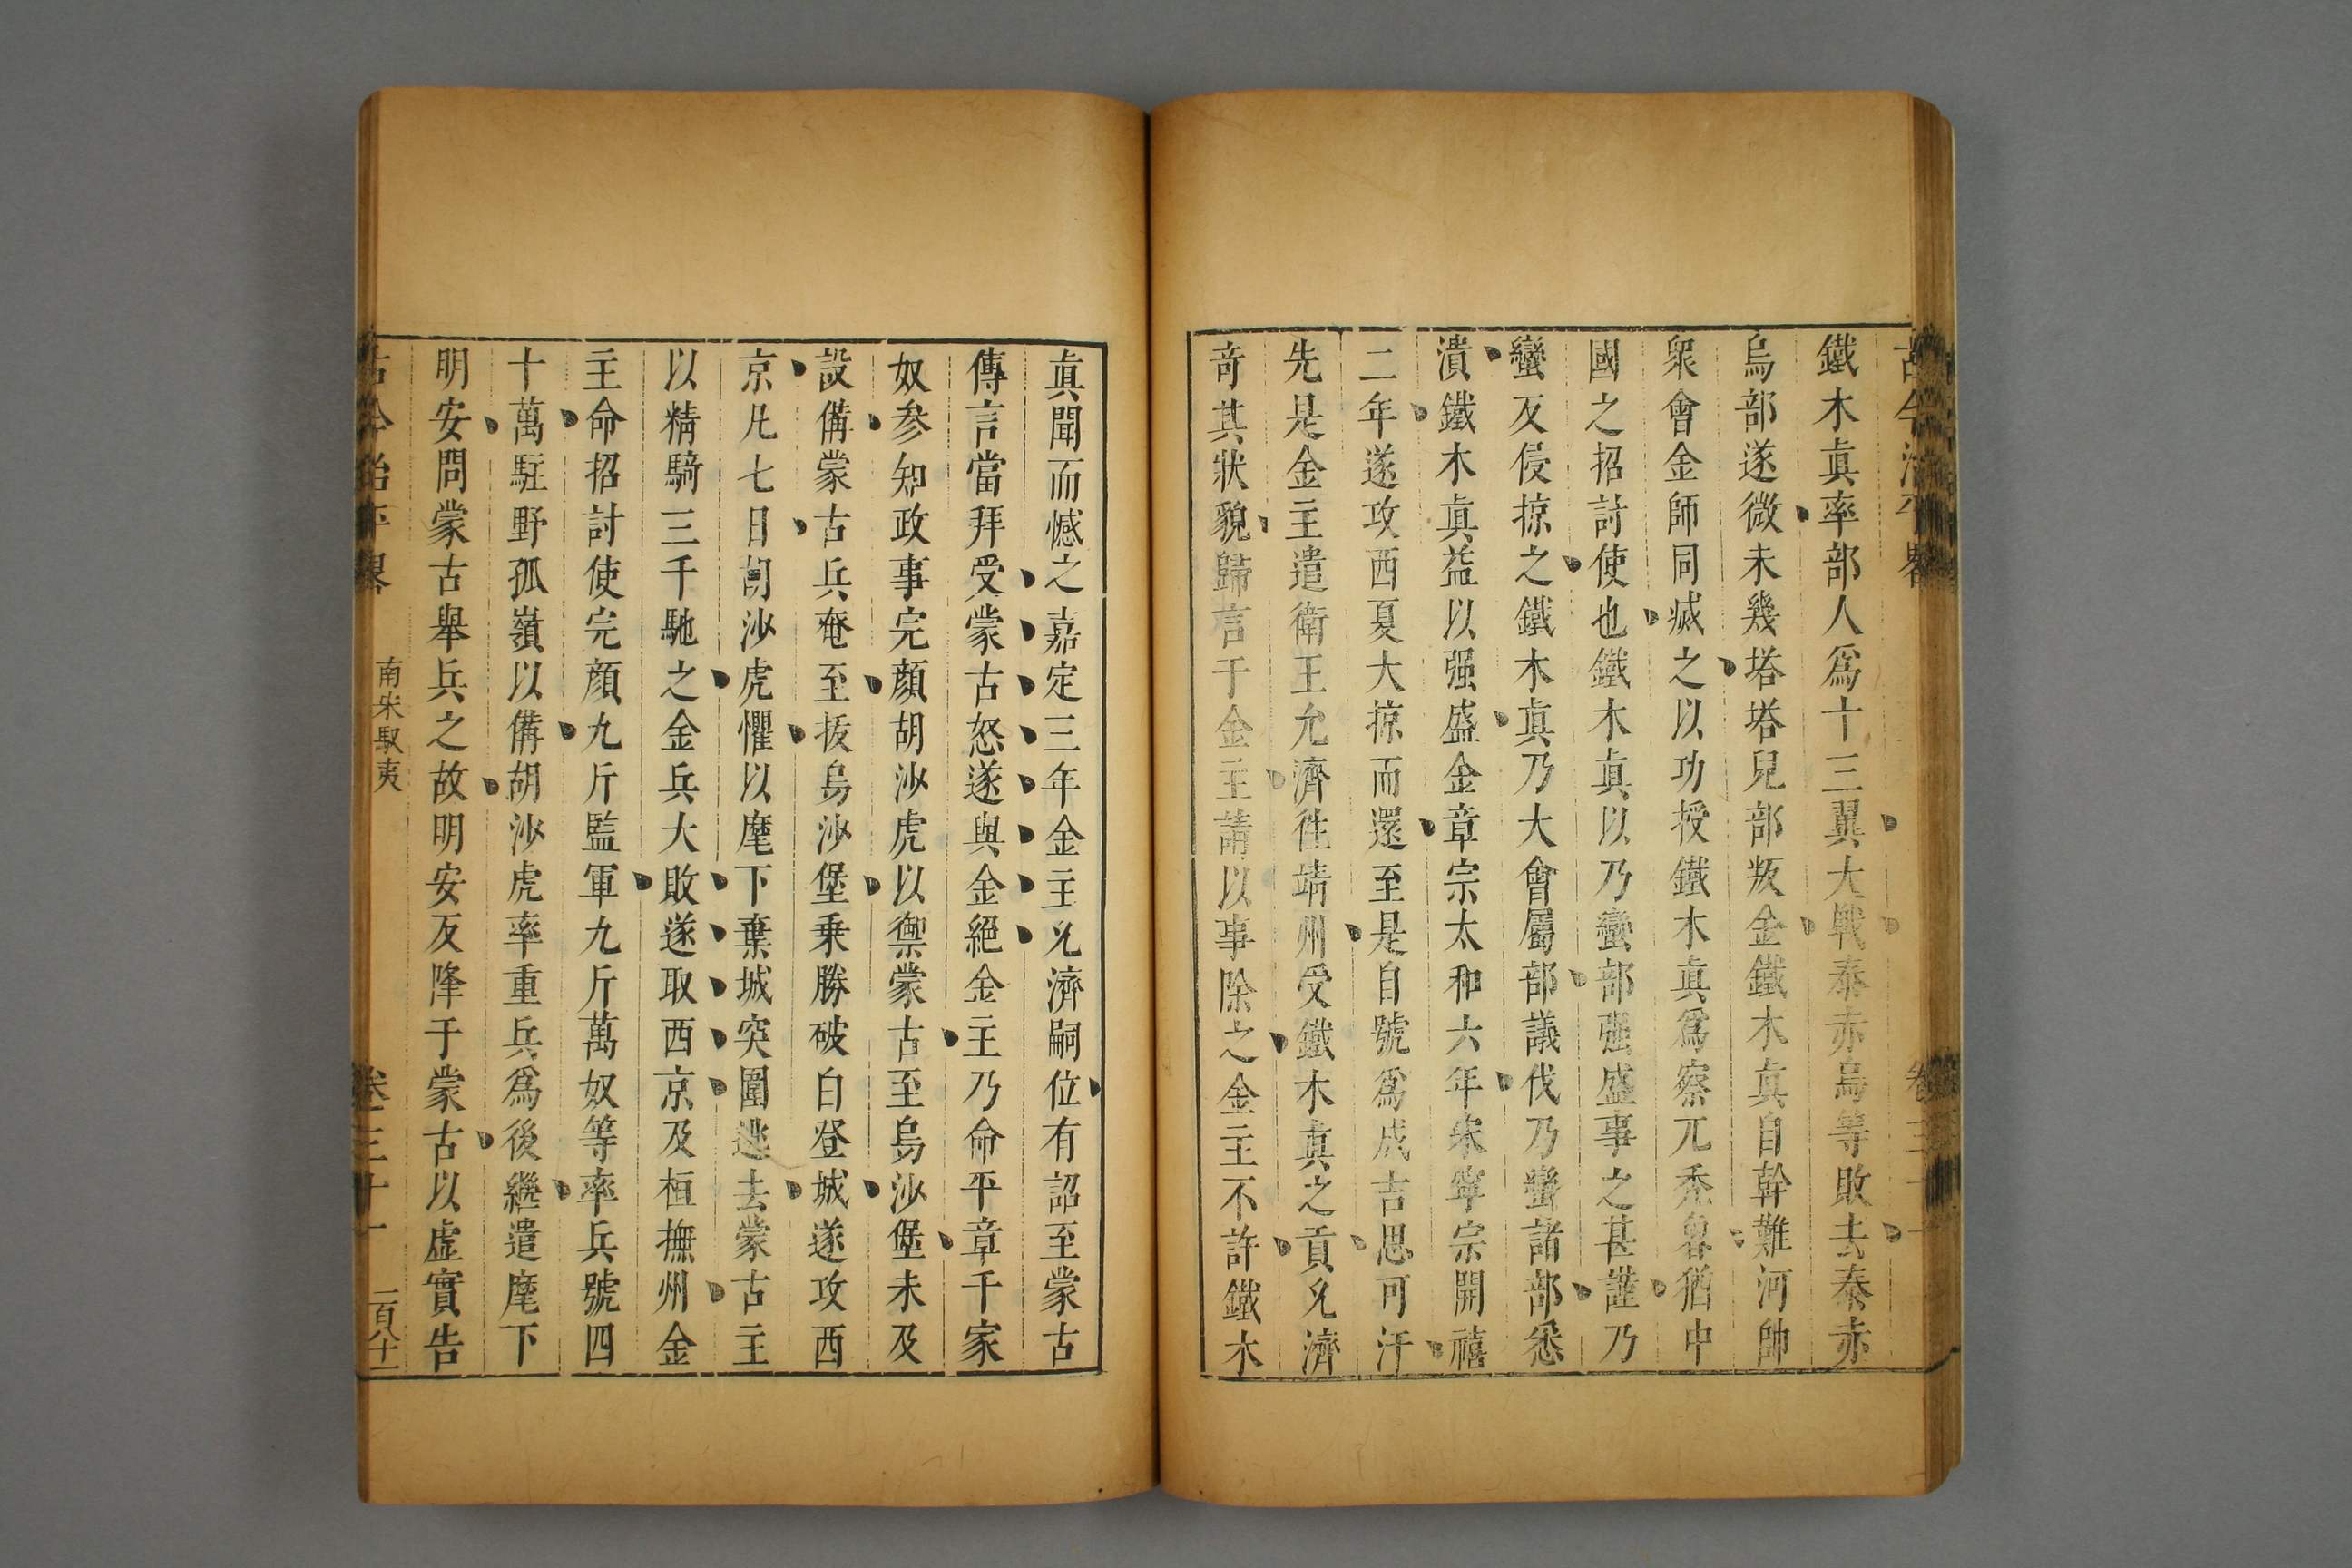 古今治平畧 卷三十一
鐵木眞率部人爲十三翼大戰泰赤烏等敗去泰赤
烏部遂微未幾塔塔兒部叛金鐵木眞自斡難河帥
衆會金師同滅之以功授鐵木眞爲察兀禿魯猶中
國之招討使也鐵木眞以乃蠻部强盛事之甚謹乃
蠻反侵掠之鐵木眞乃大會屬部議伐乃蠻諸部悉
潰鐵木眞益以强盛金章宗太和六年宋寧宗開禧
二年遂攻西夏大掠而還至是自號爲成吉思可汗
先是金主遣衛王允濟徃靖州受鐵木眞之貢允濟
竒其狀貌歸言于金主請以事除之金主不許鐵木
眞聞而憾之嘉定三年金主允濟嗣位有詔至蒙古
傳言當拜受蒙古怒遂與金絕金主乃命平章千家
奴参知政事完顏胡沙虎以禦蒙古至烏沙堡未及
設備蒙古兵奄至拔烏沙堡乗勝破白登城遂攻西
京凡七日胡沙虎懼以麾下棄城突圍逃去蒙古主
以精騎三千馳之金兵大敗遂取西京及桓撫州金
主命招討使完顏九斤監軍九斤萬奴等率兵號四
十萬駐野孤嶺以備胡沙虎率重兵爲後繼遣麾下
明安問蒙古舉兵之故明安反降于蒙古以虛實告
古今治平畧 南宋馭夷 卷三十一 一百十二